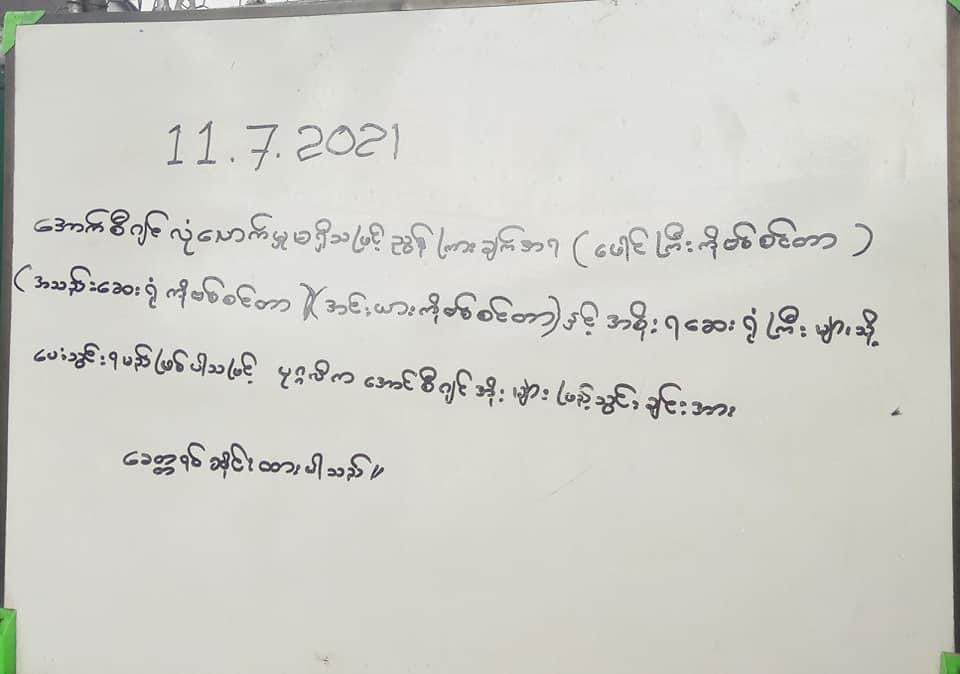 11.7.2021
အောက်စီဂျင် လုံလောက်မှု မရှိသဖြင့် ညွှန်ကြားချက်အရ (ဖောင်ကြီးကိုဗစ်စင်တာ)
(အသည်းဆေးရုံ ကိုဗစ်စင်တာ)(အင်းယားကိုဗစ်စင်တာ)နှင့် အစိုးရဆေးရုံကြီးများသို့
ပေးသွင်းရမည်ဖြစ်ပါသဖြင့် ပုဂ္ဂလိက အောင်စီဂျင်အိုးများ ဖြည့်သွင်းခြင်းအား
ခေတ္တရပ်ဆိုင်းထားပါသည်။